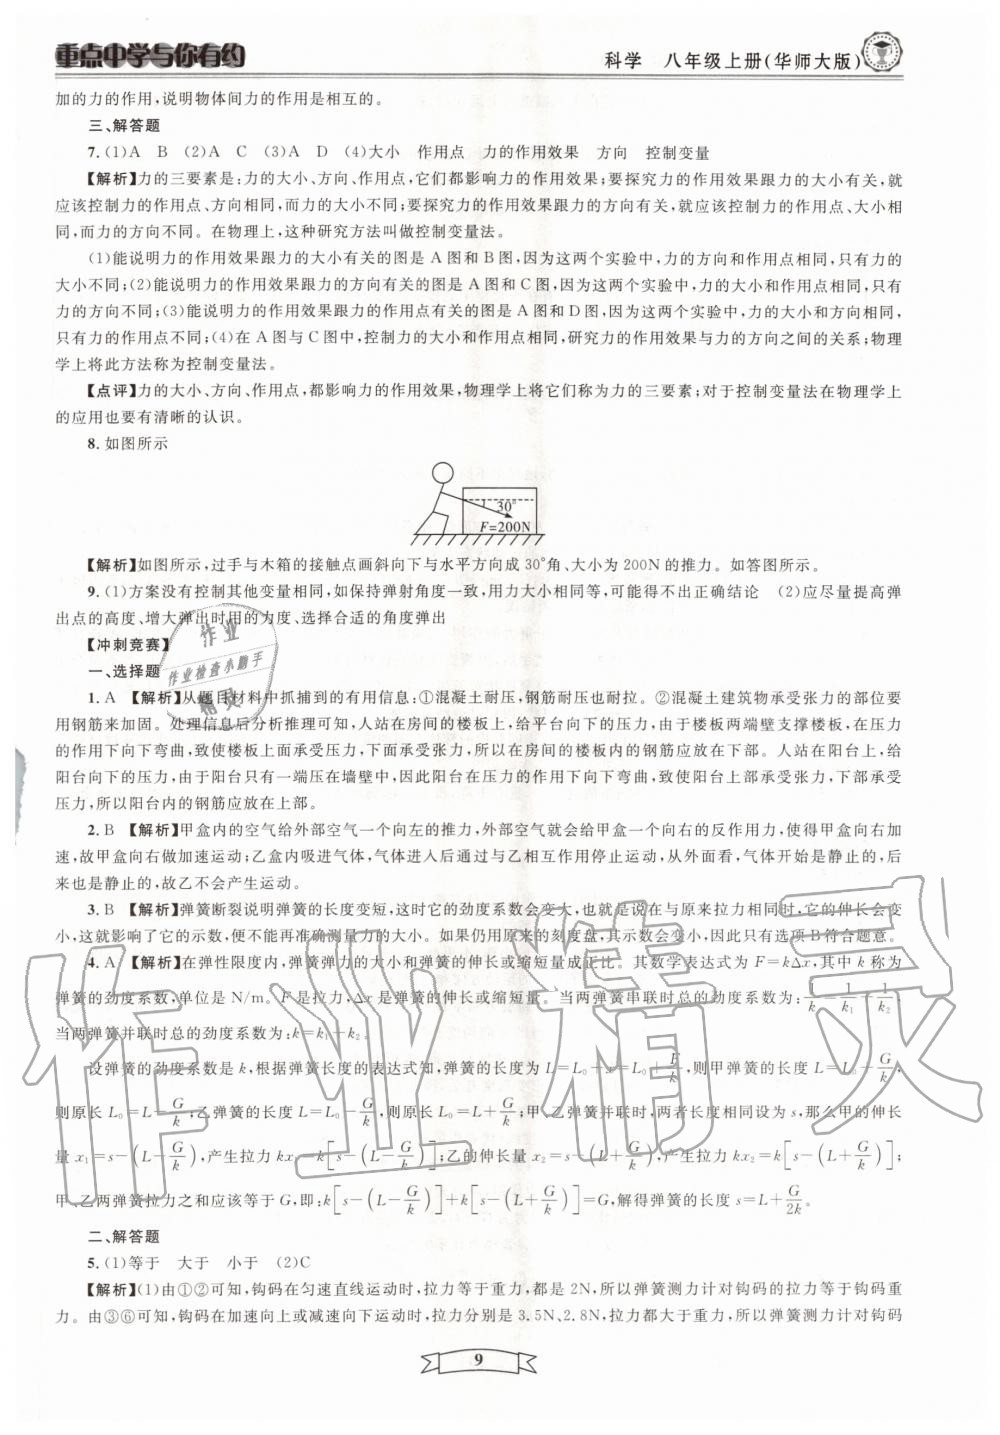 重点中学与你有约
科学 八年级上册(华师大版)
加的力的作用,说明物体间力的作用是相互的。
三、解答题
7. (1)A B (2)A C (3)A D (4)大小 作用点 力的作用效果 方向 控制变量
【解析】力的三要素是:力的大小、方向、作用点,它们都影响力的作用效果;要探究力的作用效果跟力的大小有关,就
应该控制力的作用点、方向相同,而力的大小不同;要探究力的作用效果跟力的方向有关,就应该控制力的作用点、大小相
同,而力的方向不同。在物理上,这种研究方法叫做控制变量法。
(1)能说明力的作用效果跟力的大小有关的图是 A 图和 B 图,因为这两个实验中,力的方向和作用点相同,只有力的
大小不同;(2)能说明力的作用效果跟力的方向有关的图是 A 图和 C 图,因为这两个实验中,力的大小和作用点相同,只有
力的方向不同;(3)能说明力的作用效果跟力的作用点有关的图是 A 图和 D 图,因为这两个实验中,力的大小和方向相同,
只有力的作用点不同;(4)在 A 图与 C 图中,控制力的大小和作用点相同,研究力的作用效果与力的方向之间的关系;物理
学上将此方法称为控制变量法。
【点评】力的大小、方向、作用点,都影响力的作用效果,物理学上将它们称为力的三要素;对于控制变量法在物理学上
的应用也要有清晰的认识。
8. 如图所示
30°
F=200N
【解析】如图所示,过手与木箱的接触点画斜向下与水平方向成 30°角、大小为 200N 的推力。如答图所示。
9. (1)方案没有控制其他变量相同,如保持弹射角度一致,用力大小相同等,可能得不出正确结论 (2)应尽量提高弹
出点的高度、增大弹出时用的力度、选择合适的角度弹出
【冲刺竞赛】
一、选择题
1. A 【解析】从题目材料中抓捕到的有用信息:①混凝土耐压,钢筋耐压也耐拉。②混凝土建筑物承受张力的部位要
用钢筋来加固。处理信息后分析推理可知,人站在房间的楼板上,给平台向下的压力,由于楼板两端壁支撑楼板,在压力
的作用下向下弯曲,致使楼板上面承受压力,下面承受张力,所以在房间的楼板内的钢筋应放在下部。人站在阳台上,给
阳台向下的压力,由于阳台只有一端压在墙壁中,因此阳台在压力的作用下向下弯曲,致使阳台上部承受张力,下部承受
压力,所以阳台内的钢筋应放在上部。
2. B 【解析】甲盒内的空气给外部空气一个向左的推力,外部空气就会给甲盒一个向右的反作用力,使得甲盒向右加
速,故甲盒向右做加速运动;乙盒内吸进气体,气体进入后通过与乙相互作用停止运动,从外面看,气体开始是静止的,后
来也是静止的,故乙不会产生运动。
3. B 【解析】弹簧断裂说明弹簧的长度变短,这时它的劲度系数会变大,也就是说在与原来拉力相同时,它的伸长会变
小,这就影响了它的示数,便不能再准确测量力的大小。如果仍用原来的刻度盘,其示数会变小,因此只有选项 B 符合题意。
4. A 【解析】在弹性限度内,弹簧弹力的大小和弹簧的伸长或缩短量成正比。其数学表达式为 F=kΔx,其中 k 称为
弹簧的劲度系数,单位是 N/m。F 是拉力,Δx 是弹簧的伸长或缩短量。当两弹簧串联时总的劲度系数为:1/k=1/k₁+1/k₂,
当两弹簧并联时总的劲度系数为:k=k₁+k₂。
设弹簧的劲度系数是 k,根据弹簧长度的表达式知,弹簧的长度为 L=L₀+x=L₀+F/k,则甲弹簧的长度 L=L₀+G/k,
则原长 L₀=L-G/k;乙弹簧的长度 L=L₀-G/k,则原长 L₀=L+G/k;甲、乙弹簧并联时,两者长度相同设为 s,那么甲的伸长
量 x₁=s-(L-G/k),产生拉力 kx₁=k[s-(L-G/k)];乙的伸长量 x₂=s-(L+G/k),产生拉力 kx₂=k[s-(L+G/k)];
甲、乙两弹簧拉力之和应该等于 G,即:k[s-(L-G/k)]+k[s-(L+G/k)]=G,解得弹簧的长度 s=L+G/2k。
二、解答题
5. (1)等于 大于 小于 (2)C
【解析】(1)由①②可知,钩码在匀速直线运动时,拉力等于重力,都是 2N,所以弹簧测力计对钩码的拉力等于钩码重
力。由③⑥可知,钩码在加速向上或减速向下运动时,拉力分别是 3.5N、2.8N,拉力都大于重力,所以弹簧测力计对钩码
9
作业
作业检查小助手
精灵
作业精灵